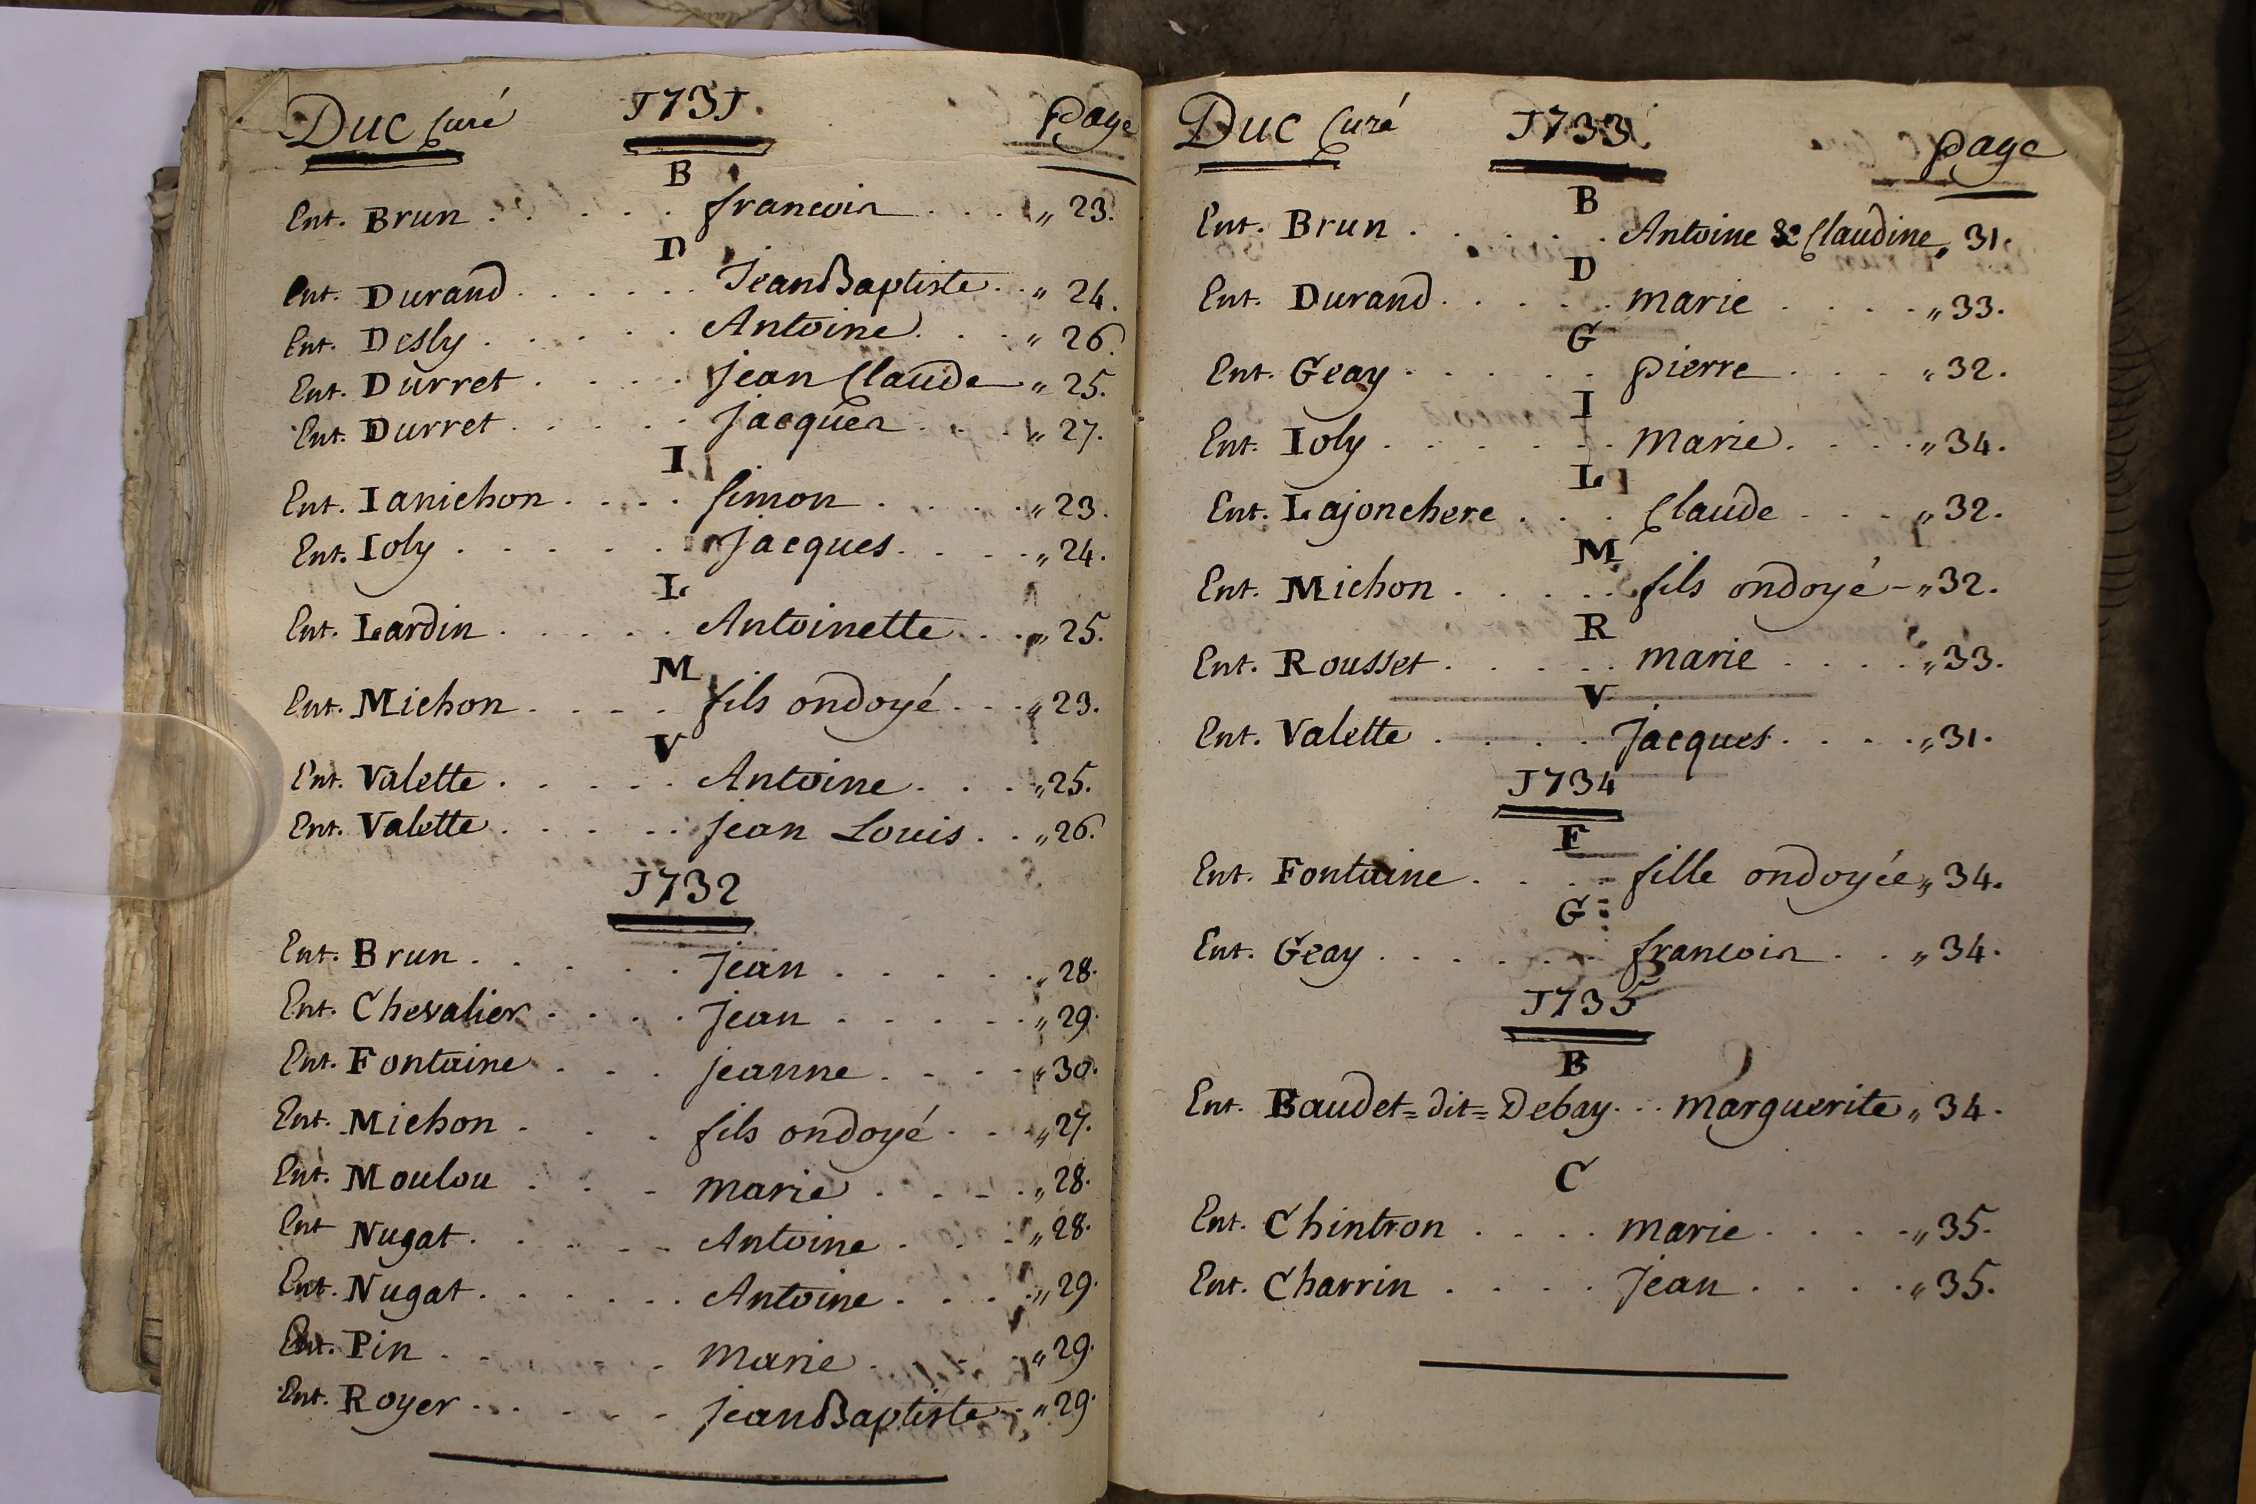 Duc Curé 1731. Page
B
Ent. Brun . . . . . francois . . . „ 23.
D
Ent. Durand . . . . . . Jean Baptiste . . „ 24.
Ent. Desly . . . . . Antoine . . . „ 26.
Ent. Durret . . . . jean Claude „ 25.
Ent. Durret . . . . . Jacques . . . „ 27.
I
Ent. Ianichon . . . . simon . . . . . „ 23.
Ent. Ioly . . . . . Jacques . . . . „ 24.
L
Ent. Lardin . . . . . Antoinette . . . „ 25.
M
Ent. Michon . . . . fils ondoyé . . . „ 23.
V
Ent. Valette . . . . . Antoine . . . „ 25.
Ent. Valette . . . . . jean Louis . . „ 26.
1732
Ent. Brun . . . . . Jean . . . . . „ 28.
Ent. Chevalier . . . . Jean . . . . . „ 29.
Ent. Fontaine . . . jeanne . . . . „ 30.
Ent. Michon . . . fils ondoyé . . . „ 27.
Ent. Moulou . . . marie . . . . „ 28.
Ent Nugat . . . . . Antoine . . . „ 28.
Ent. Nugat . . . . . . Antoine . . . . „ 29.
Ent. Pin . . . . marie . . . . „ 29.
Ent. Royer . . . . . jean Baptiste . „ 29.
Duc Curé 1733. page
B
Ent. Brun . . . . . Antoine & Claudine „ 31.
D
Ent. Durand . . . . . marie . . . . „ 33.
G
Ent. Geay . . . . . pierre . . . „ 32.
I
Ent. Ioly . . . . . . marie . . . . „ 34.
L
Ent. Lajonchere . . . Claude . . . „ 32.
M
Ent. Michon . . . . . fils ondoyé - „ 32.
R
Ent. Rousset . . . . . marie . . . . „ 33.
V
Ent. Valette . . . . Jacques . . . . „ 31.
1734
F
Ent. Fontaine . . . . fille ondoyée „ 34.
G
Ent. Geay . . . . . . francois . . „ 34.
1735
B
Ent. Baudet = dit = Debay . . . marguerite „ 34.
C
Ent. Chintron . . . . marie . . . . „ 35.
Ent. Charrin . . . . Jean . . . . „ 35.